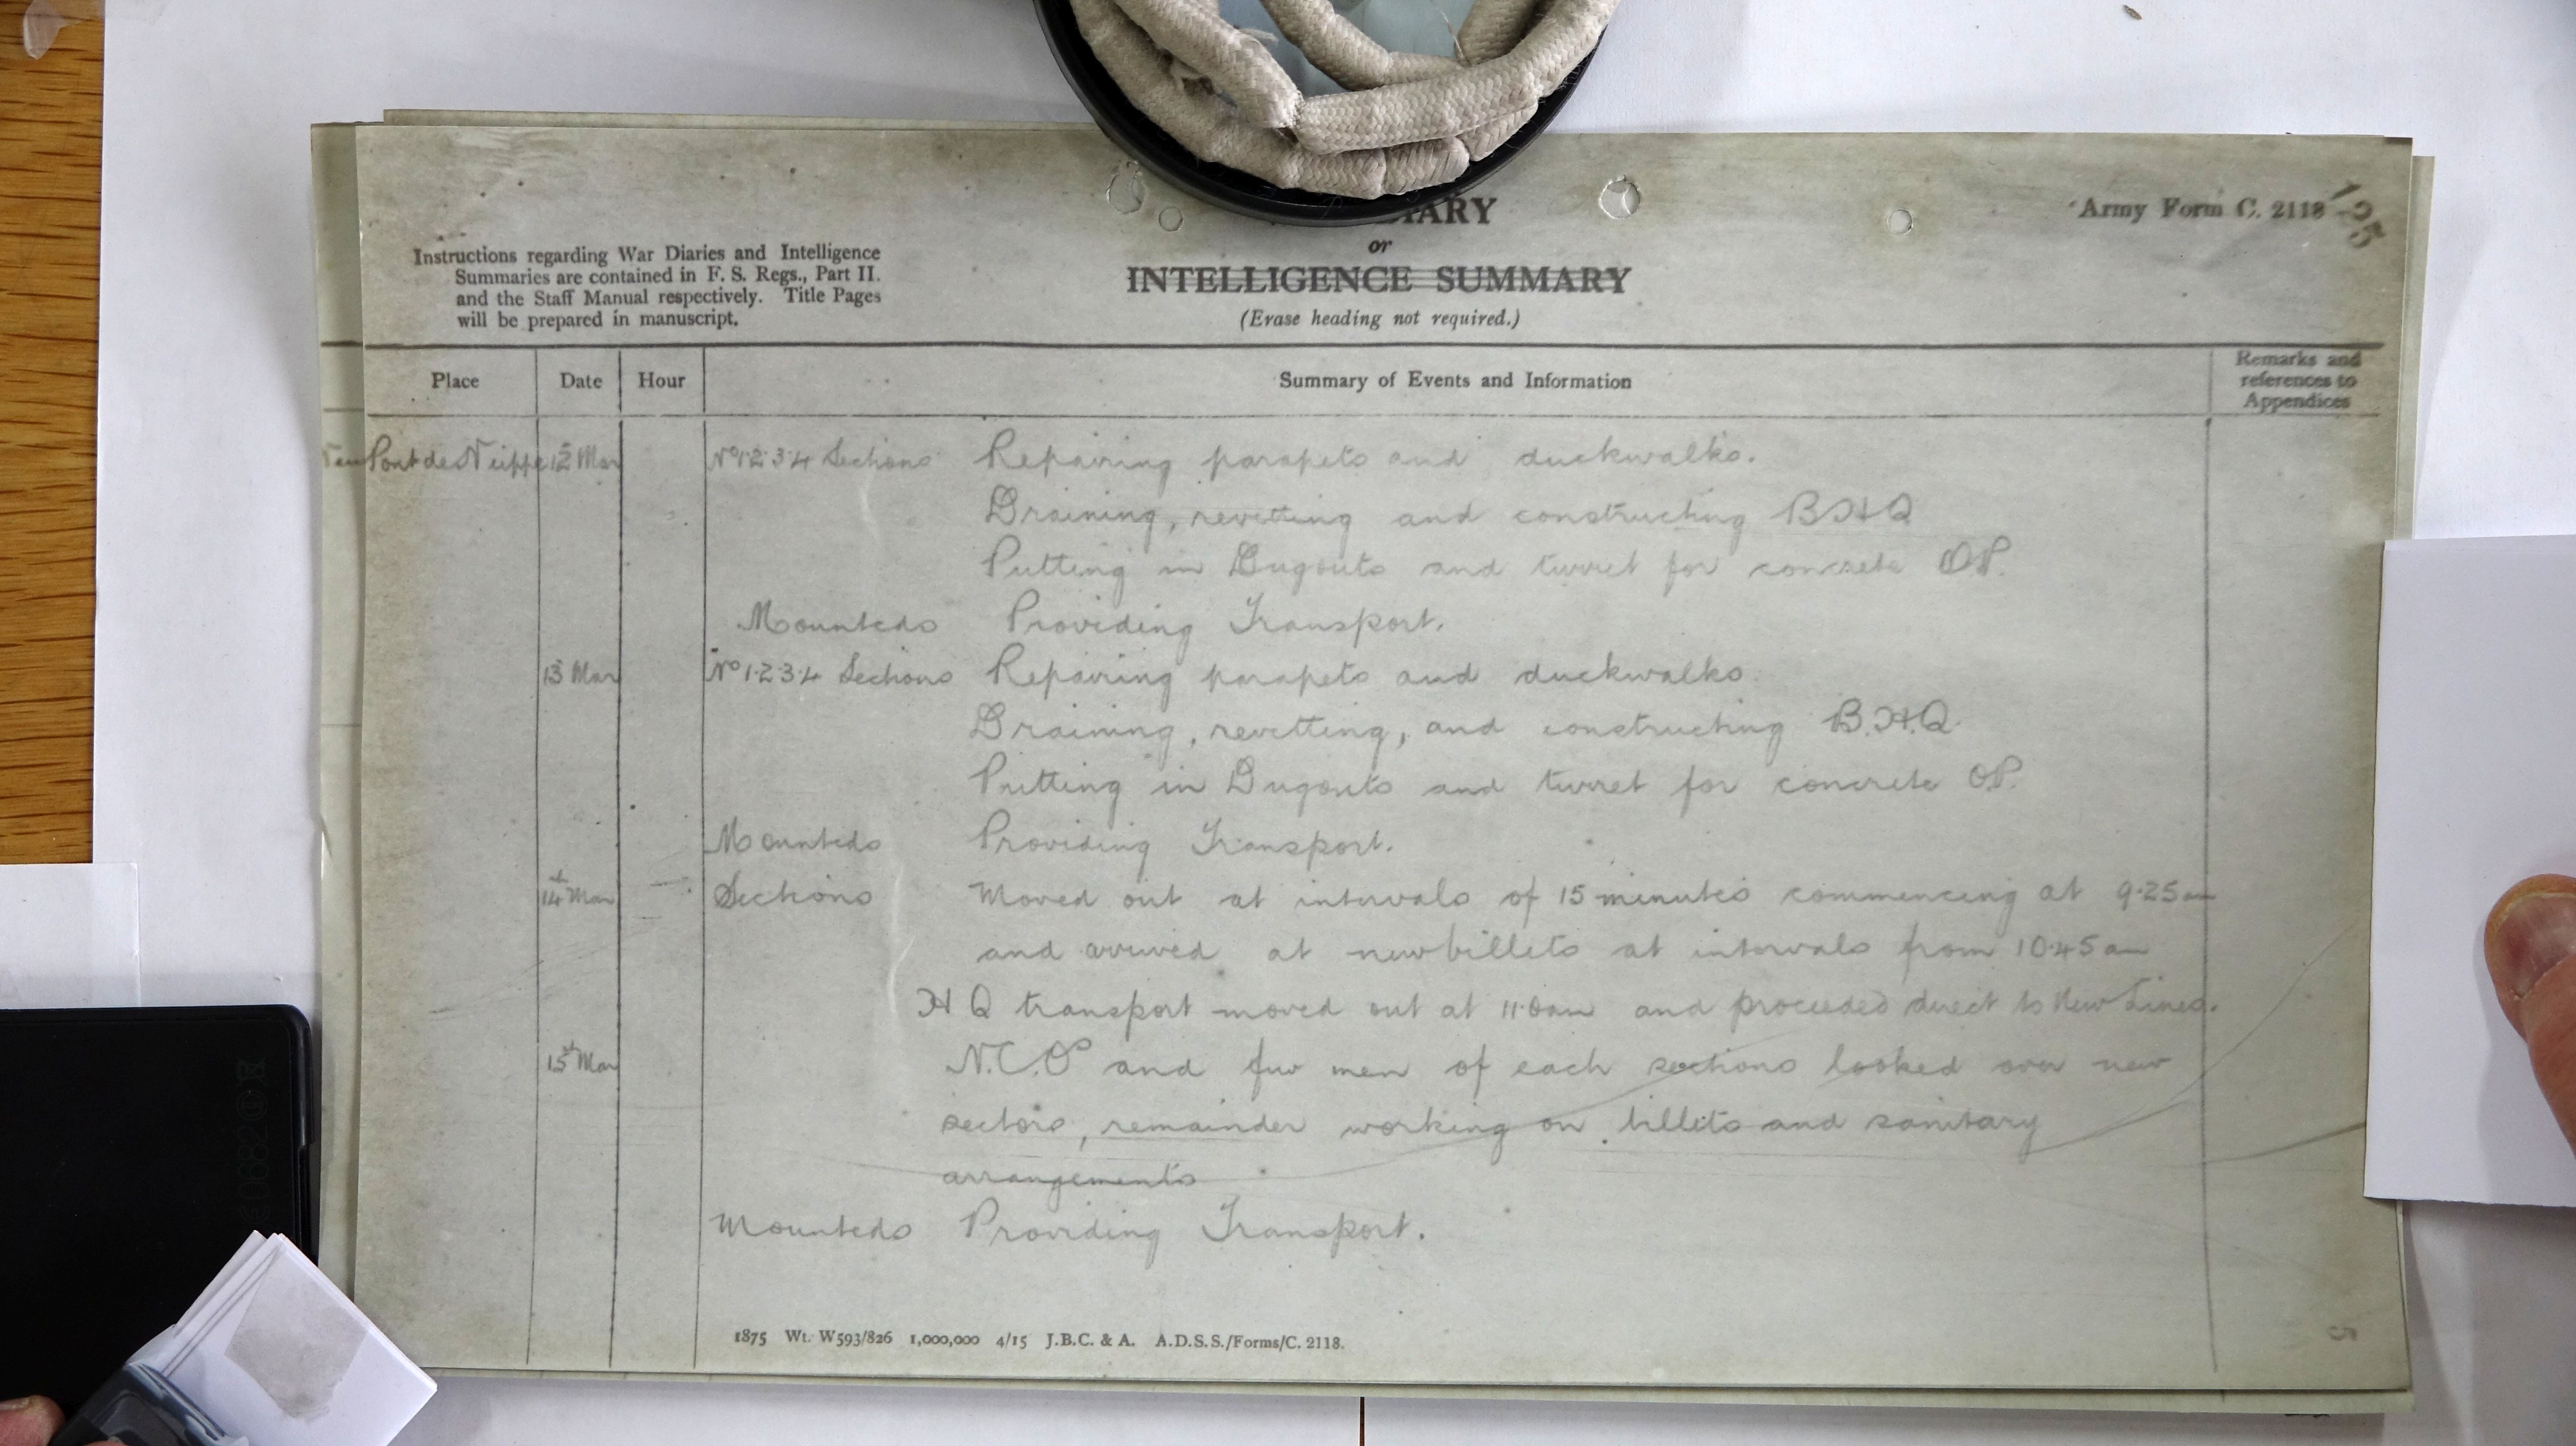 Army Form C. 2118
125
DIARY
or
INTELLIGENCE SUMMARY
(Erase heading not required.)
Instructions regarding War Diaries and Intelligence
Summaries are contained in F. S. Regs., Part II.
and the Staff Manual respectively. Title Pages
will be prepared in manuscript.
Place Date Hour Summary of Events and Information Remarks and
references to
Appendices
Pont de Nieppe 12 Mar No 1.2.3.4 Sections Repairing parapets and duckwalks.
Draining, revetting and constructing BHQ
Putting in Dugouts and turret for concrete OP.
Mounteds Providing Transport.
13 Mar No 1.2.3.4 Sections Repairing parapets and duckwalks.
Draining, revetting, and constructing B.H.Q.
Putting in Dugouts and turret for concrete OP.
Mounteds Providing Transport.
14th Mar Sections Moved out at intervals of 15 minutes commencing at 9.25am
and arrived at new billets at intervals from 10.45am
HQ transport moved out at 11.0am and proceeded direct to New Lines.
15th Mar N.C.Os and few men of each sections looked over new
sectors, remainder working on billets and sanitary
arrangements
Mounteds Providing Transport.
1875 Wt. W593/826 1,000,000 4/15 J.B.C. & A. A.D.S.S./Forms/C. 2118.